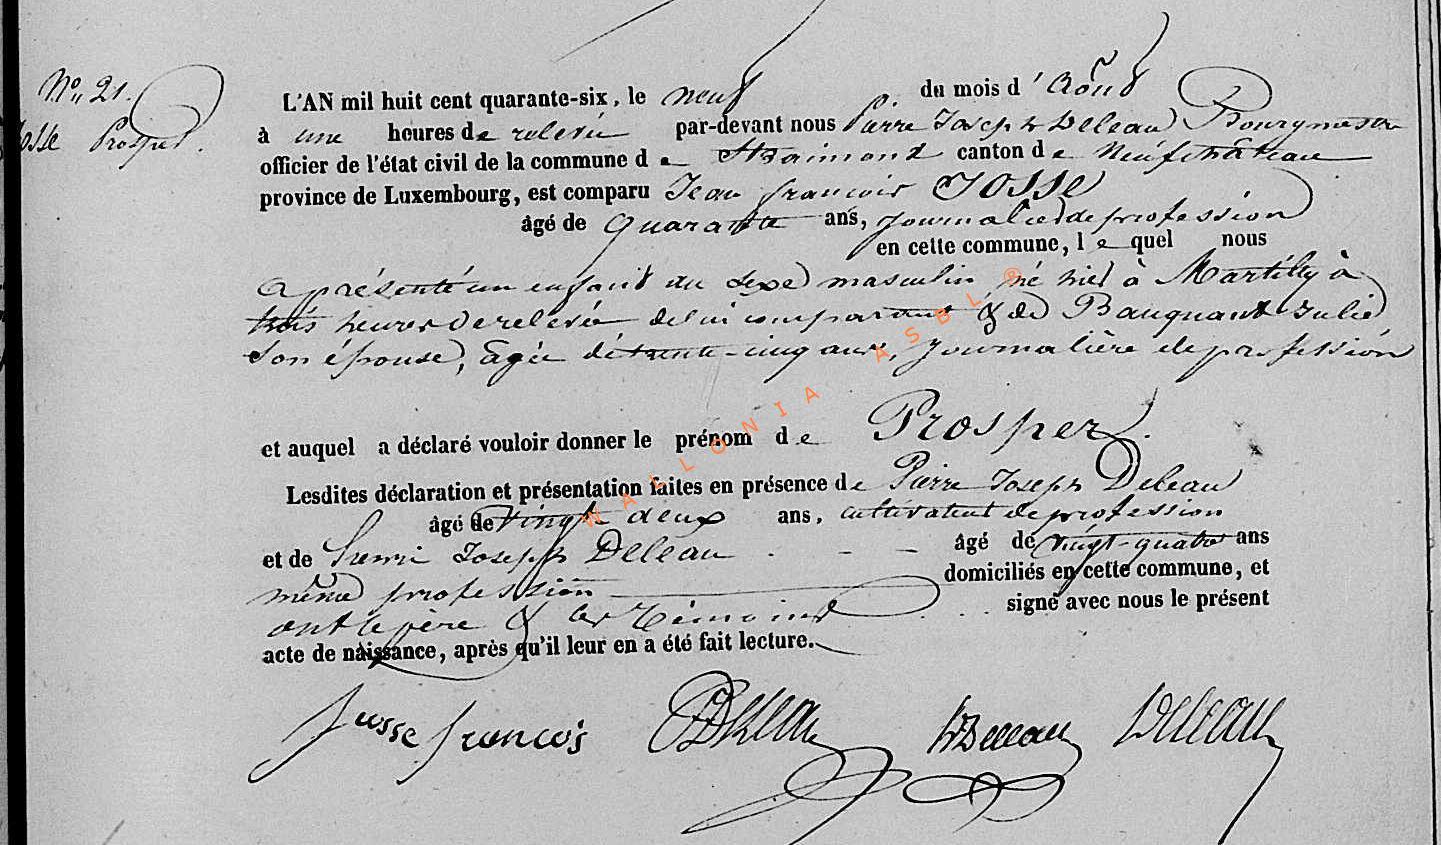 N° 21.
Josse Prosper.
L'AN mil huit cent quarante-six, le neuf du mois d'Août
à une heures de relevée par-devant nous Pierre Joseph Deleau Bourgmestre
officier de l'état civil de la commune de Straimont canton de Neufchâteau
province de Luxembourg, est comparu Jean françois Josse
âgé de quarante ans, journalier de profession
en cette commune, lequel nous
a présenté un enfant du sexe masculin, né hier à Martilly à
trois heures de relevée, de lui comparant & de Bauquant Julie
son épouse, âgée de trente-cinq ans, journalière de profession
et auquel a déclaré vouloir donner le prénom de Prosper.
Lesdites déclaration et présentation faites en présence de Pierre Joseph Deleau
âgé de vingt deux ans, cultivateur de profession
et de Henri Joseph Deleau âgé de vingt-quatre ans
même profession domiciliés en cette commune, et
ont le père & les témoins signé avec nous le présent
acte de naissance, après qu'il leur en a été fait lecture.
Josse françois PJDeleau hJDeleau Deleau
WALLONIA ASBL ®